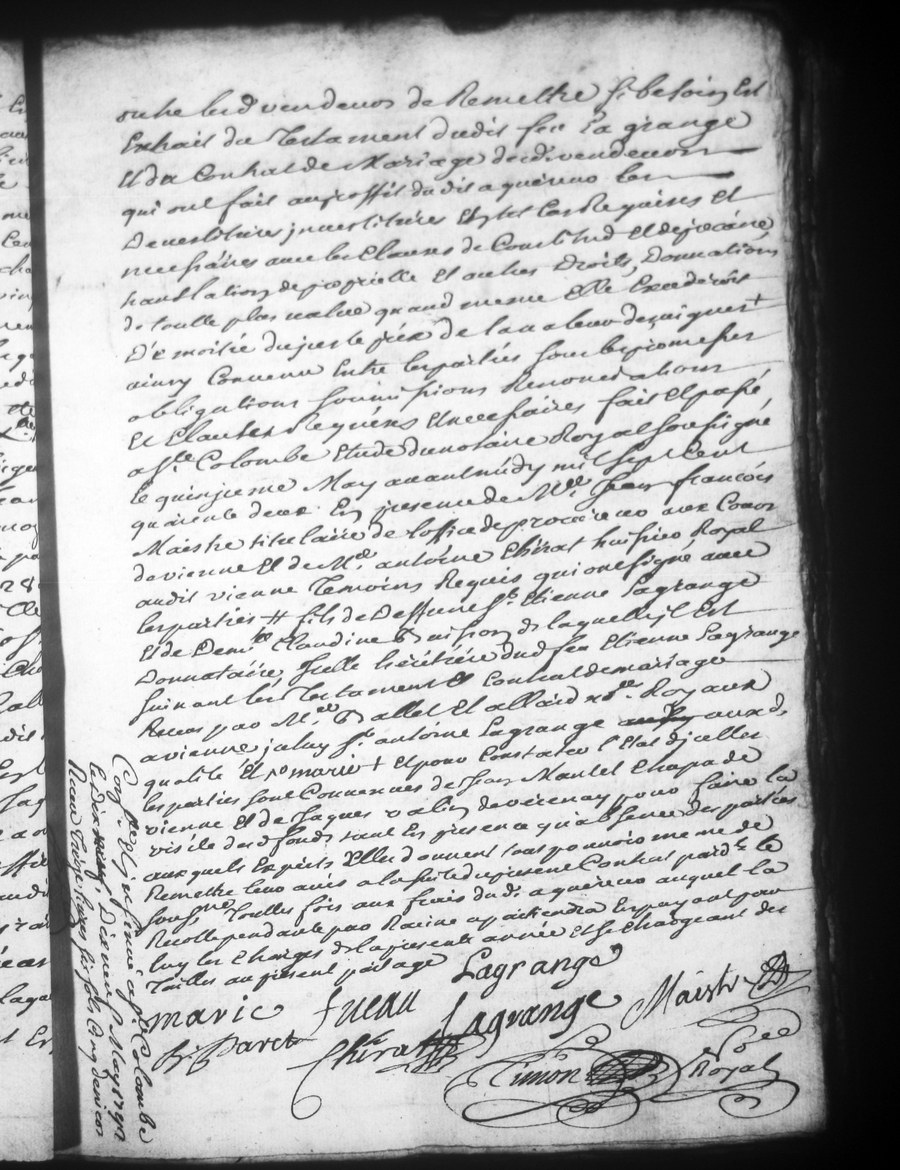 outre lesd vendeurs de Remettre si besoin Est
Extrait du Testament dudit feu La grange
Et du Contrat de Mariage desd vendeurs
qui ont fait au proffit dudit aquéreur les
Devestitures jnvestitures Et Requises Et
necessaires avec les Clauses de Constitud Et de précaire
translation de proprietté Et autres Droits, Donnations
de toutte plus value quand meme Elle Excederoit
De moitié du juste prix de la valeur
ainsy Convenu Entre les parties sous les promesses
obligations soumissions Renonciations
Et Clauses Requises Et necessaires fait Et passé
a Ste Colombe Etude du notaire Royal soussigné
le quinzieme May avant midy mil sept cent
quarente deux En presence de Me Jean françois
Maistre titulaire de l'office de procureur aux Cours
de vienne Et de Me antoine Chirat huissier Royal
audit vienne Temoins Requis qui ont signé avec
les parties # fils de Deffunt Sr Etienne Lagrange
Et de Demlle Claudine Buisson de laquelle il Est
Donnataire, Et elle hérétière dud feu Etienne Lagrange
suivant les Testament Et Contrat de mariage
Receus par Mes Ballet Et allard nres Royaux
a vienne jceluy Sr antoine Lagrange aux d.
qualité Et sr marie + Et pour Constater l'Etat djcelles
les parties sont Convenues de Jean Mantel Chapa de
vienne Et de Jaques valin de vérenay pour faire la
visite desd fonds tant En presence qu'absence des parties
auxquels Experts Elles donnent tout pouvoir meme de
Remettre leur avis a la suitte du présent Contrat pard. le
soussné Touttes fois aux frais dud. aquéreur auquel la
Recolte pendante par Racine apartiendra En payant par
luy les Charges de la présente année Et se Chargeant des
Tailles au présent partage
Lagrange
marie fueau Lagrange Maistre
Br. Paret Chirat
Timon nre Royal
Conlé Et jnsinué a Ste Colombe
Le Dixneuf May 1742
Receu Treize livres six sols Cinq deniers